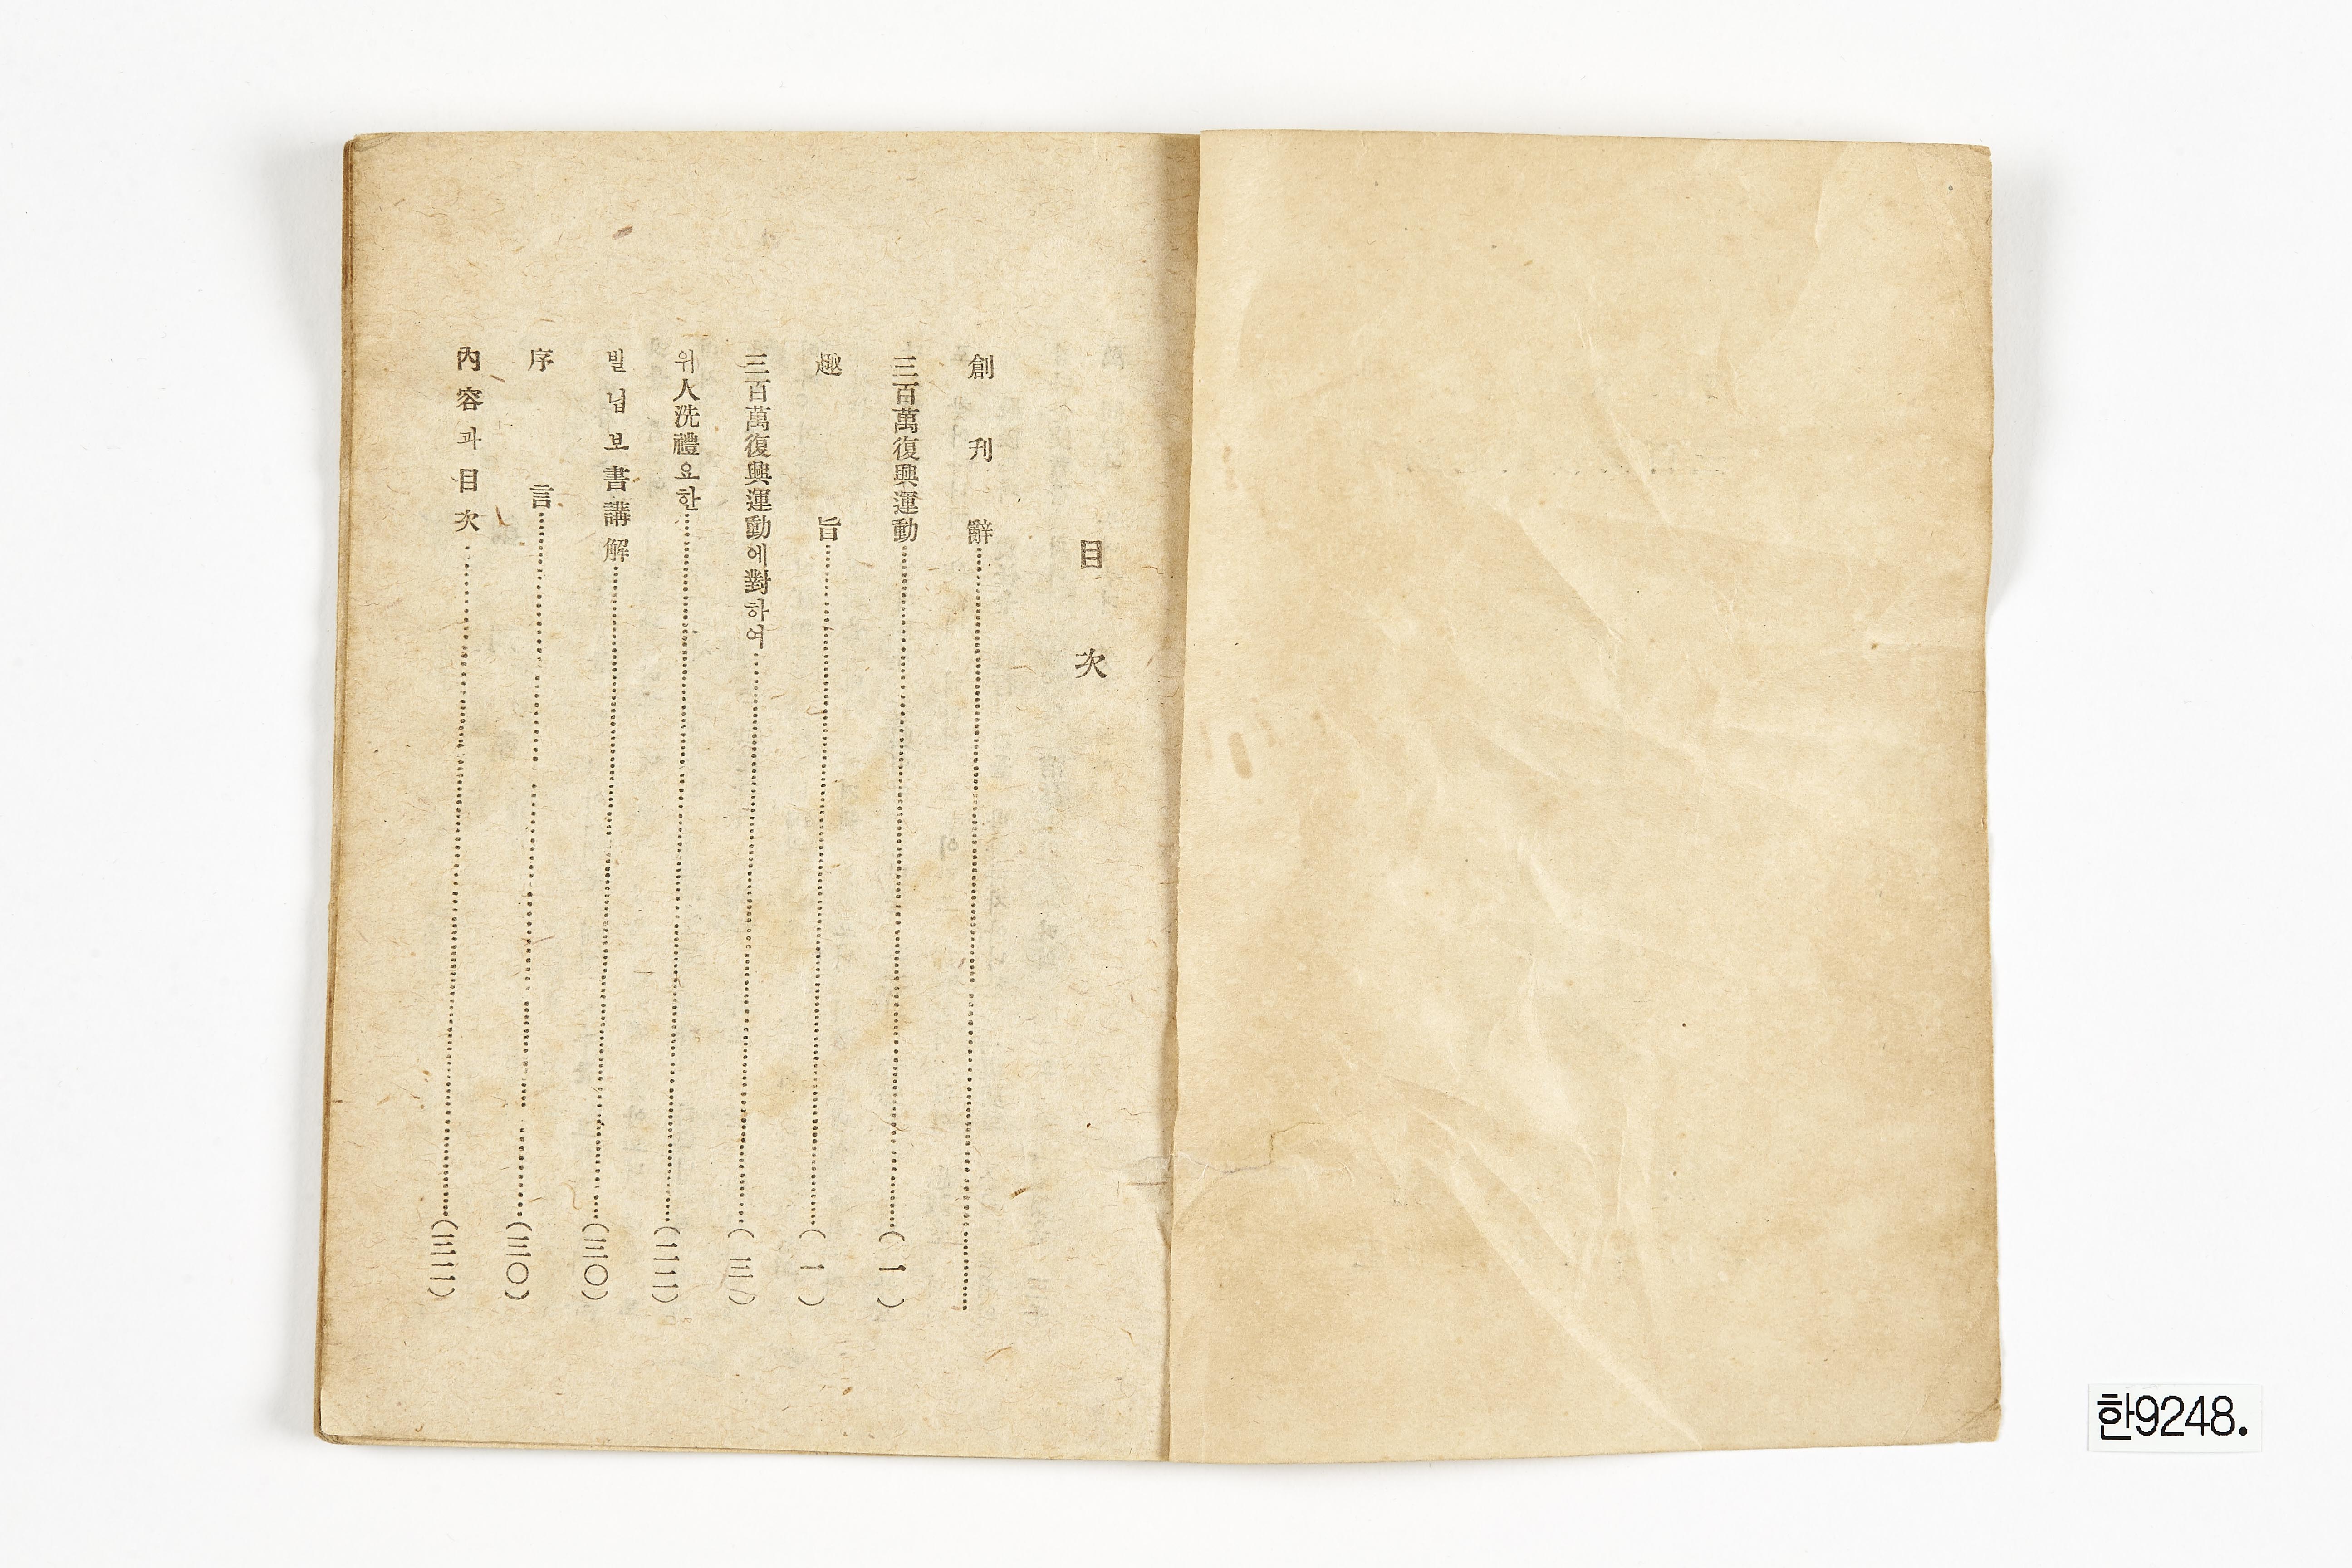 目次
創刊辭……………………
三百萬復興運動……………………(一)
趣旨……………………(二)
三百萬復興運動에對하여……………………(三)
위人洗禮요한……………………(二二)
빌닙보書講解……………………(三〇)
序言……………………(三〇)
內容과目次……………………(三二)
한9248.